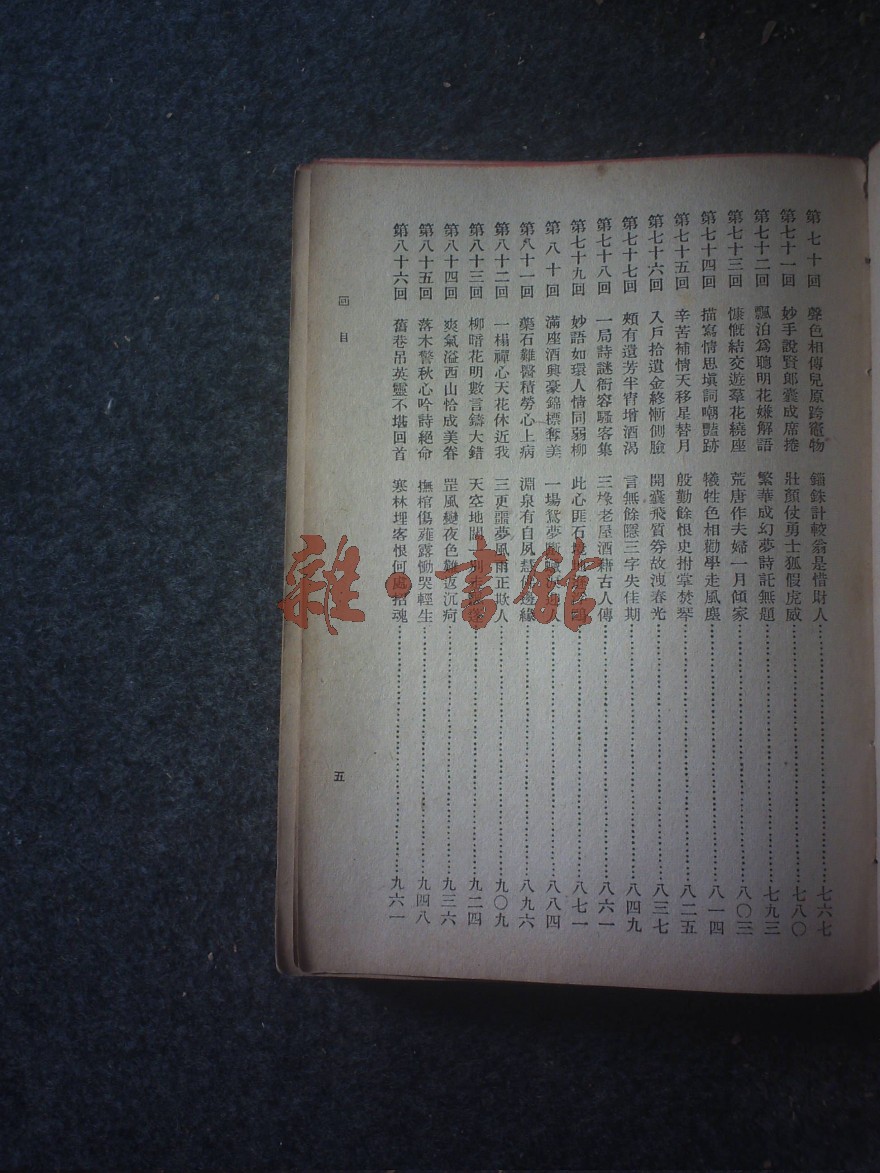 第七十回 聲色相傳兒原跨竈物 錙銖計較翁是惜財人 七六七
第七十一回 妙手說賢郎囊成席捲 壯顏仗勇士狐假虎威 七八〇
第七十二回 飄泊爲聰明花嫌解語 繁華成幻夢詩託無題 七九三
第七十三回 慷慨結交遊羣花繞座 荒唐作夫婦一月傾家 八〇三
第七十四回 描寫情思填詞嘲豔跡 犧牲色相勸學走風塵 八一四
第七十五回 辛苦補情天移星替月 殷勤餘恨史拊掌焚琴 八二五
第七十六回 入戶拾遺金終慚側臉 開囊飛質券故洩春光 八三七
第七十七回 頗有遺芳半宵增酒渴 言無餘隱三字失佳期 八四九
第七十八回 一局詩謎衙容騷客集 三椽老屋酒藉古人傳 八六一
第七十九回 妙語如環人情同弱柳 此心匪石 八七一
第八十回 滿座酒興豪錦標奪美 一場鴛夢斷 人 八八四
第八十一回 藥石難醫積勞心上病 淵泉有自夙慧佛邊緣 八九六
第八十二回 一榻禪心天花休近我 三更噩夢風雨正欺人 九〇九
第八十三回 柳暗花明數言鑄大錯 天空地闊 別 九二四
第八十四回 爽氣溢西山恰成美眷 罡風變夜色難返沉疴 九三六
第八十五回 落木警秋心吟詩絕命 撫棺傷薤露慟哭輕生 九四八
第八十六回 舊巷吊英靈不堪回首 寒林埋客恨何處招魂 九六一
回目
五
雜·書館